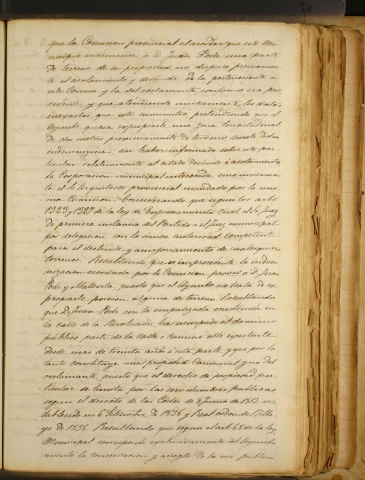 que la Comision provincial al acordar que este Mu-
nicipio indemnice á D. Juan Pode una parte
de terreno de su propiedad no dispuso previamen-
te el acotamiento y deslinde de la perteneciente á
este Comun y la del reclamante, conforme era pro-
cedente, y que ateniendose unicamente á los datos
inexactos que este suministra pretendiendo que el
Ayuntº queria expropiarle una zona longitudinal
de dos metros proximamente de terreno sin la debida
indemnizacion, sin haber informado sobre este par-
ticular relativamente al citado deslinde y acotamiento
la Corporacion municipal interesada, ni
el Arquitecto provincial mandado por la mis-
ma Comision. Considerando que segun los artos
1323 y 1327 de la ley de Enjuiciamiento Civil el Sr Juez
de primera instancia del Partido ó el Juez municipal
por delegacion son la unica autoridad competente
para el deslinde y amojonamiento de cualesquier
terreno. Resultando, que es improcedente la indem-
nizacion acordada por la Comision, provoca D. Juan
Pode y Matavila, puesto que el Ayuntº no trata de ex-
propiarle porcion alguna de terreno. Resultando
que D. Juan Pode con la empalizada construida en
la Calle de la Revolucion, ha usurpado al dominio
publico parte de la Calle ó camino alli existente
desde mas de treinta años á esta parte y que por lo
tanto constituye una propiedad Comunal y no del
reclamante, puesto que el derecho de propiedad par-
ticular se limita por las servidumbres publicas
segun el decreto de las Cortes de 8 Junio de 1813 res-
tablecido en 6 Setiembre de 1836 y Real orden de 17 Ma-
yo de 1838. Resultando que segun el artº 68 de la ley
Municipal corresponde exclusivamente al Ayunta-
miento la conservacion y arreglo de la via publica